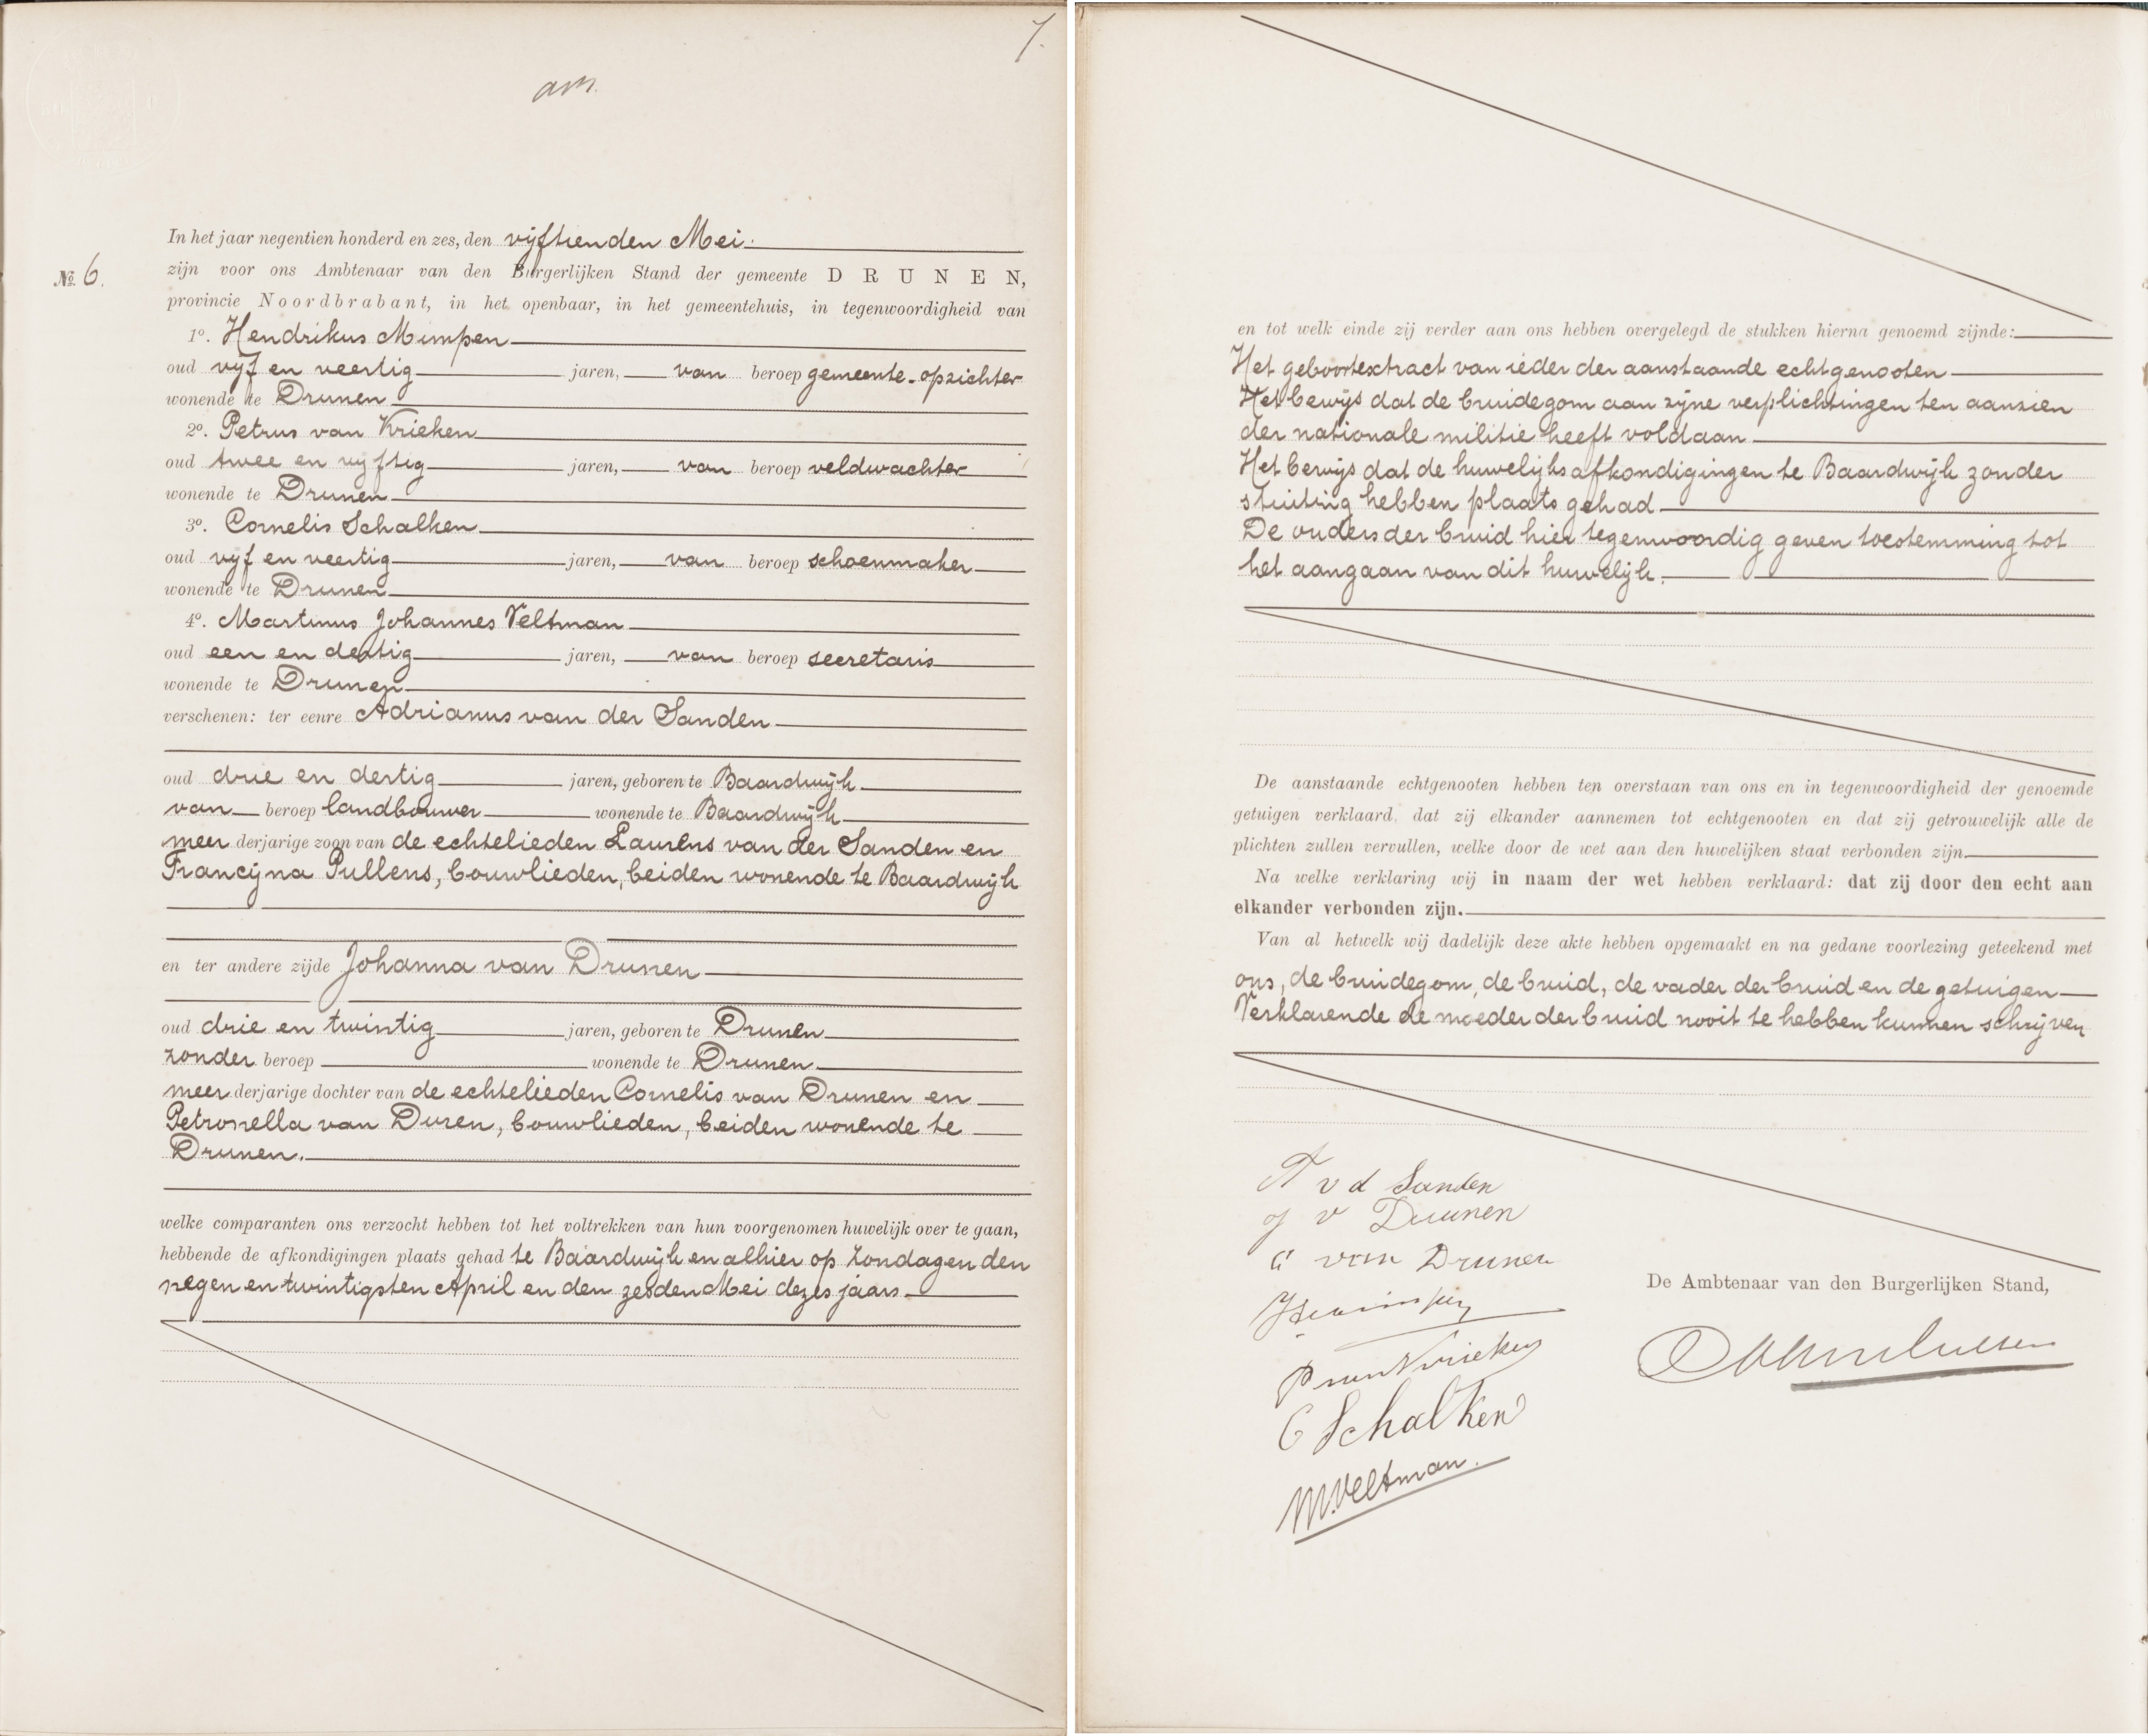 7.
am.
In het jaar negentien honderd en zes, den vijftienden Mei.
№ 6.
zijn voor ons Ambtenaar van den Burgerlijken Stand der gemeente DRUNEN,
provincie Noordbrabant, in het openbaar, in het gemeentehuis, in tegenwoordigheid van
1o. Hendrikus Mimpen
oud vijf en veertig jaren, van beroep gemeente-opzichter
wonende te Drunen
2o. Petrus van Krieken
oud twee en vijftig jaren, van beroep veldwachter
wonende te Drunen
3o. Cornelis Schalken
oud vijf en veertig jaren, van beroep schoenmaker
wonende te Drunen
4o. Martinus Johannes Veltman
oud een en dertig jaren, van beroep secretaris
wonende te Drunen
verschenen: ter eenre Adrianus van der Sanden
oud drie en dertig jaren, geboren te Baardwijk
van beroep landbouwer wonende te Baardwijk
meer derjarige zoon van de echtelieden Laurens van der Sanden en
Francijna Pullens, bouwlieden, beiden wonende te Baardwijk
en ter andere zijde Johanna van Drunen
oud drie en twintig jaren, geboren te Drunen
zonder beroep wonende te Drunen
meer derjarige dochter van de echtelieden Cornelis van Drunen en
Petronella van Duren, bouwlieden, beiden wonende te
Drunen.
welke comparanten ons verzocht hebben tot het voltrekken van hun voorgenomen huwelijk over te gaan,
hebbende de afkondigingen plaats gehad te Baardwijk en alhier op Zondagen den
negen en twintigsten April en den zesden Mei dezes jaars.
en tot welk einde zij verder aan ons hebben overgelegd de stukken hierna genoemd zijnde:
Het geboortextract van ieder der aanstaande echtgenooten
Het bewijs dat de bruidegom aan zijne verplichtingen ten aanzien
der nationale militie heeft voldaan
Het bewijs dat de huwelijksafkondigingen te Baardwijk zonder
stuiting hebben plaats gehad
De ouders der bruid hier tegenwoordig geven toestemming tot
het aangaan van dit huwelijk.
De aanstaande echtgenooten hebben ten overstaan van ons en in tegenwoordigheid der genoemde
getuigen verklaard, dat zij elkander aannemen tot echtgenooten en dat zij getrouwelijk alle de
plichten zullen vervullen, welke door de wet aan den huwelijken staat verbonden zijn.
Na welke verklaring wij in naam der wet hebben verklaard: dat zij door den echt aan
elkander verbonden zijn.
Van al hetwelk wij dadelijk deze akte hebben opgemaakt en na gedane voorlezing geteekend met
ons, de bruidegom, de bruid, de vader der bruid en de getuigen
Verklarende de moeder der bruid nooit te hebben kunnen schrijven
A v d Sanden
J v Drunen
C van Drunen
De Ambtenaar van den Burgerlijken Stand,
HMimpen
P van Krieken
C Schalken
M. Veltman.